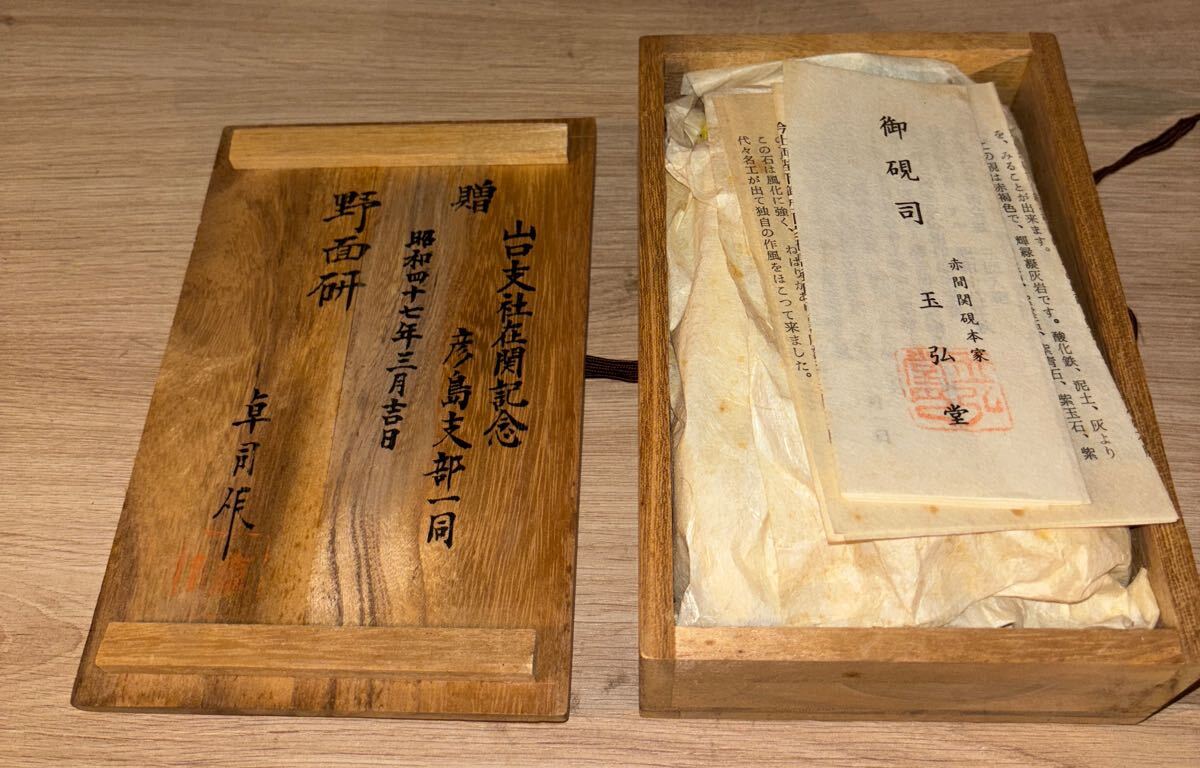 贈
山口支社在関記念
彦島支部一同
昭和四十七年三月吉日
野面研
卓司作
御硯司
玉弘堂
赤間関硯本家
を、みることが出来ます。
この硯は赤褐色で、輝緑凝灰岩です。酸化鉄、泥土、灰より
石、紫玉石、紫
この石は風化に強く、ねばり
代々名工が出て独自の作風をほこって来ました。